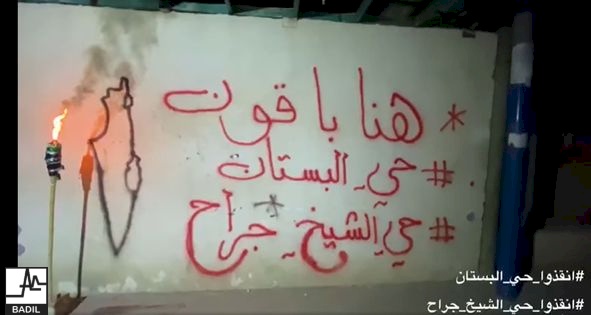 * هنا باقون
#حي_البستان
#حي_الشيخ_جراح
#انقذوا_حي_البستان
#انقذوا_حي_الشيخ_جراح
BADIL